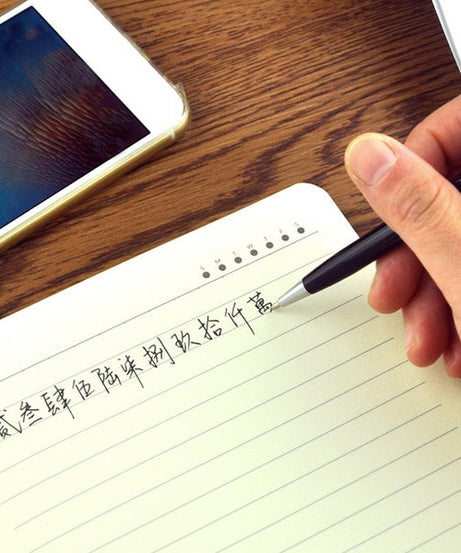 S M T W T F S
貳叁肆伍陆柒捌玖拾仟萬